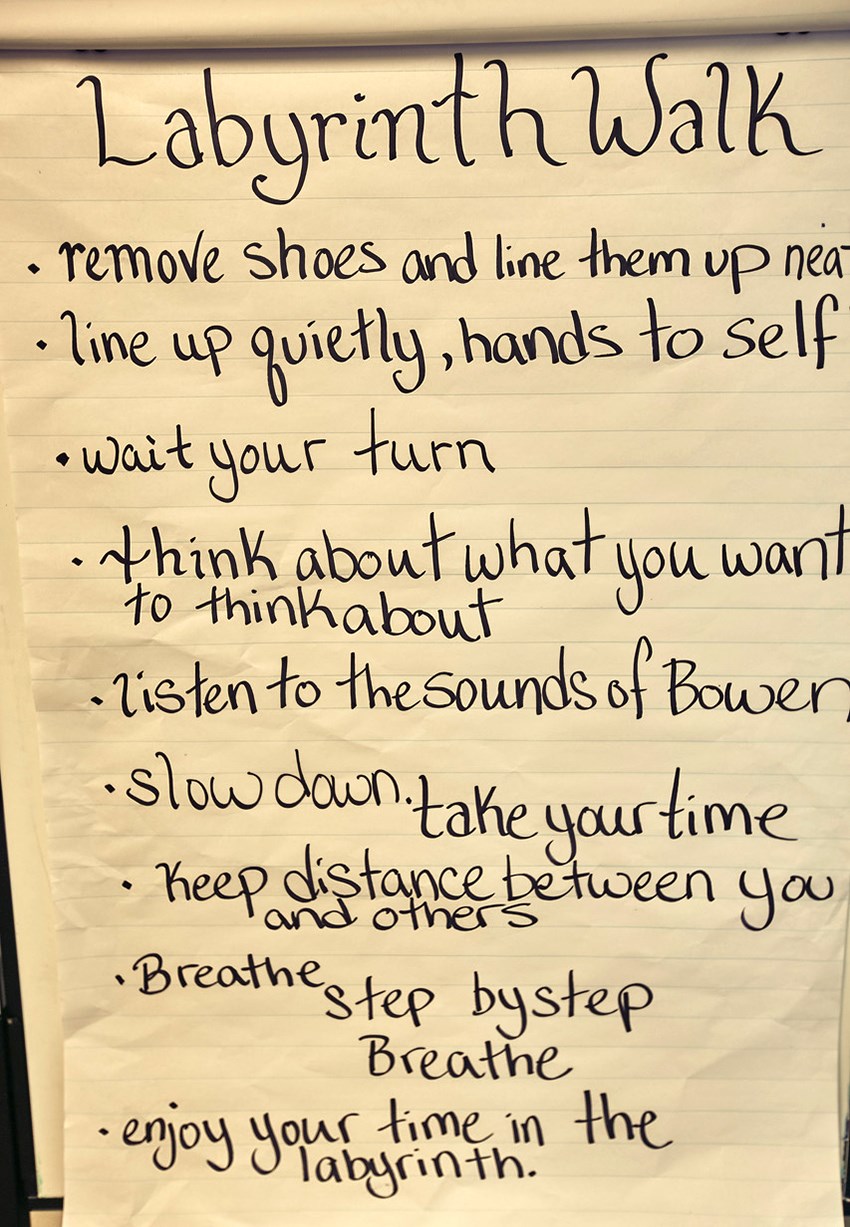 Labyrinth Walk
• remove shoes and line them up nea
• line up quietly, hands to self
• wait your turn
• think about what you want
to think about
• listen to the sounds of Bowen
• slow down. take your time
• Keep distance between you
and others
• Breathe step by step
Breathe
• enjoy your time in the
labyrinth.